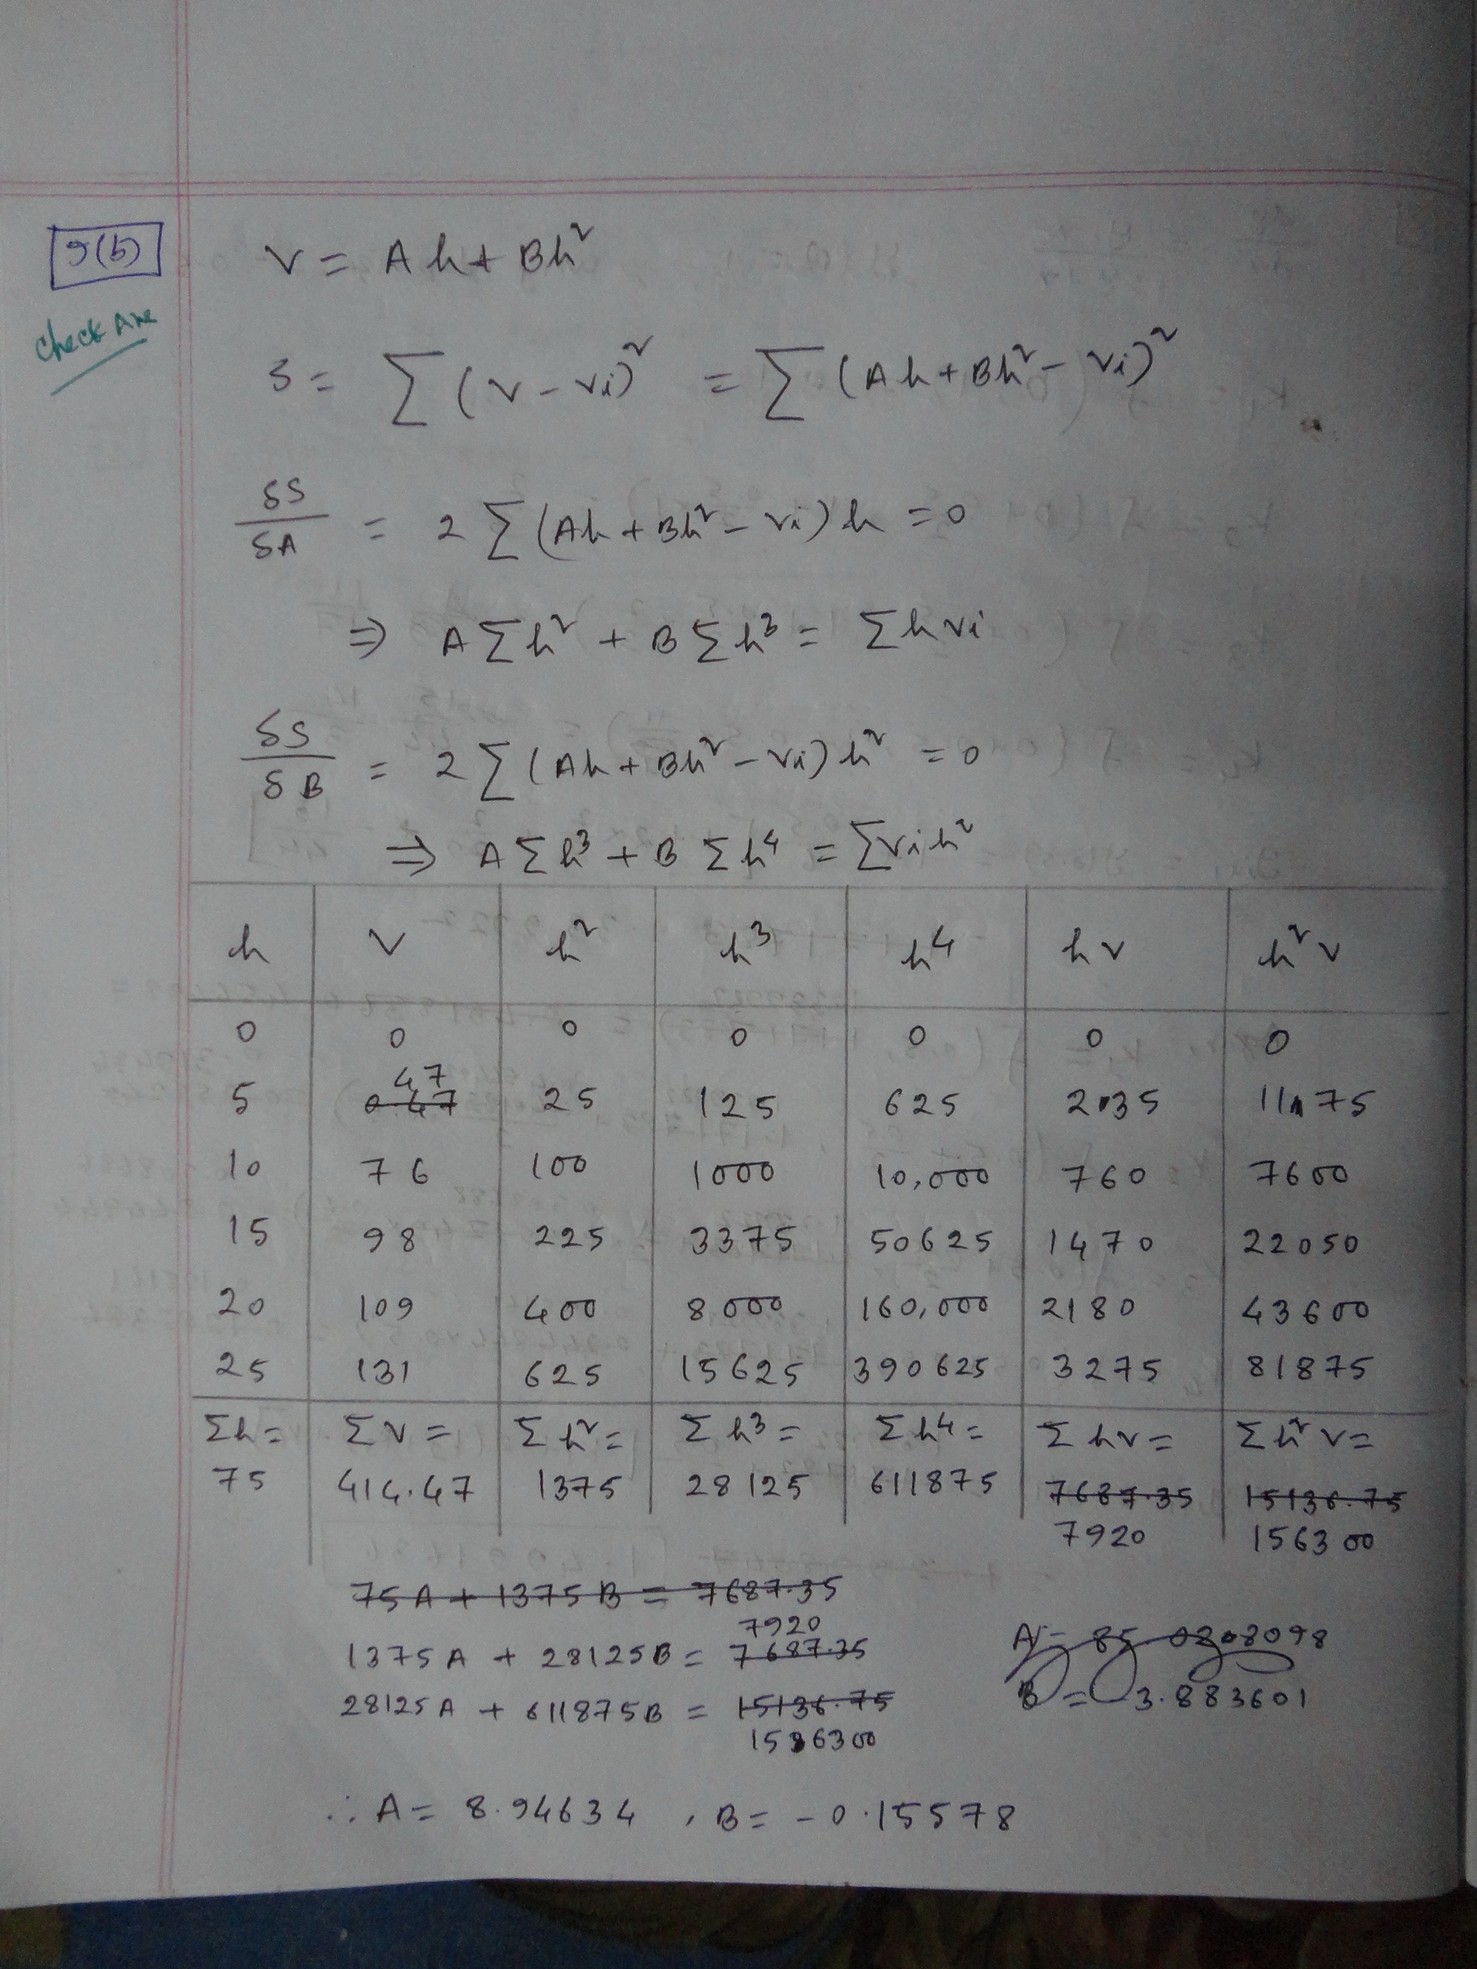 9(b)
Check Ans
V = Ah + Bh²
S = Σ (V - Vi)² = Σ (Ah + Bh² - Vi)²
δS/δA = 2 Σ (Ah + Bh² - Vi) h = 0
⇒ A Σh² + B Σh³ = Σh Vi
δS/δB = 2 Σ (Ah + Bh² - Vi) h² = 0
⇒ A Σh³ + B Σh⁴ = ΣVi h²
h V h² h³ h⁴ hV h²V
0 0 0 0 0 0 0
47
5 0.47 25 125 625 235 1175
10 76 100 1000 10,000 760 7600
15 98 225 3375 50625 1470 22050
20 109 400 8000 160,000 2180 43600
25 131 625 15625 390625 3275 81875
Σh= ΣV= Σh²= Σh³= Σh⁴= ΣhV= Σh²V=
75 414.47 1375 28125 611875 7687.35 15136.75
7920 156300
75A + 1375B = 7687.35
7920
1375A + 28125B = 7687.35
28125A + 611875B = 15136.75
156300
A = 85.0208098
B = -3.883601
∴ A = 8.94634 , B = -0.15578